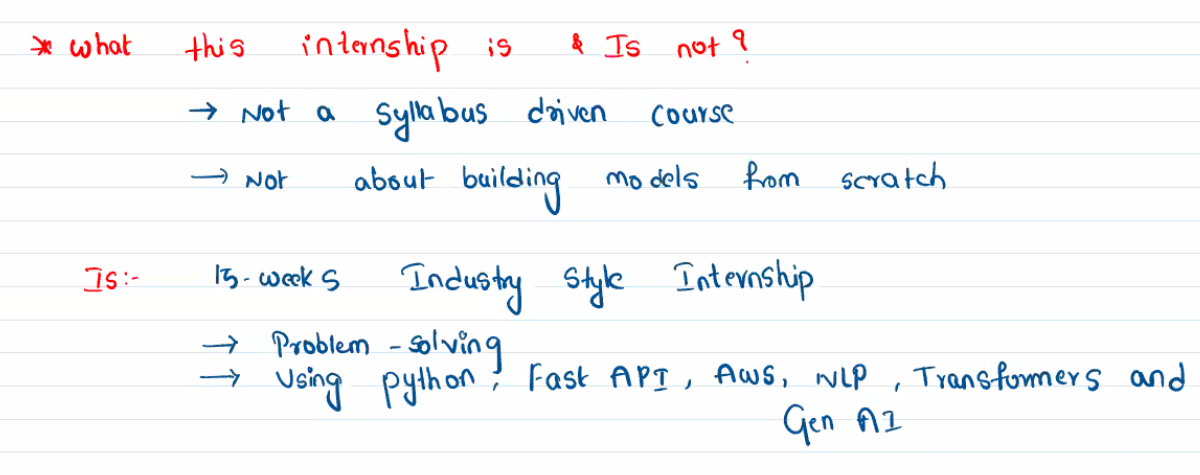 * what this internship is & Is not?
→ Not a syllabus driven course
→ Not about building models from scratch
Is:- 15-weeks Industry Style Internship
→ Problem-solving
→ Using python, Fast API, Aws, NLP, Transformers and
Gen AI